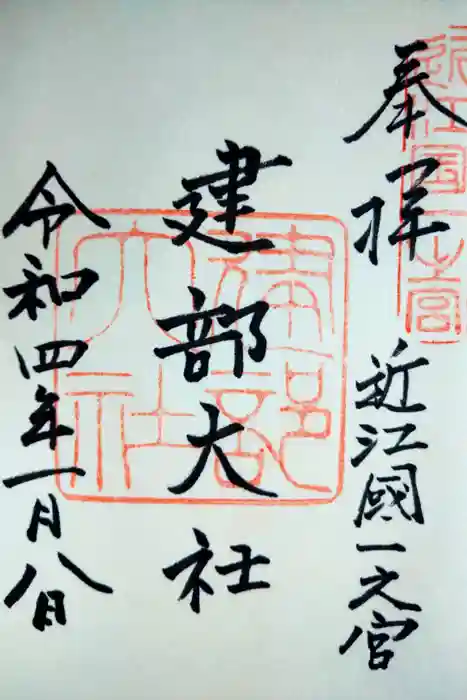 奉拝 近江國一之宮
近江国一之宮
建部大社
建部大社
令和四年一月八日